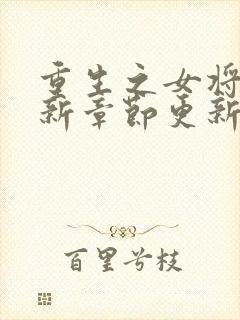 重生之女将
新章节更新
百里兮枝